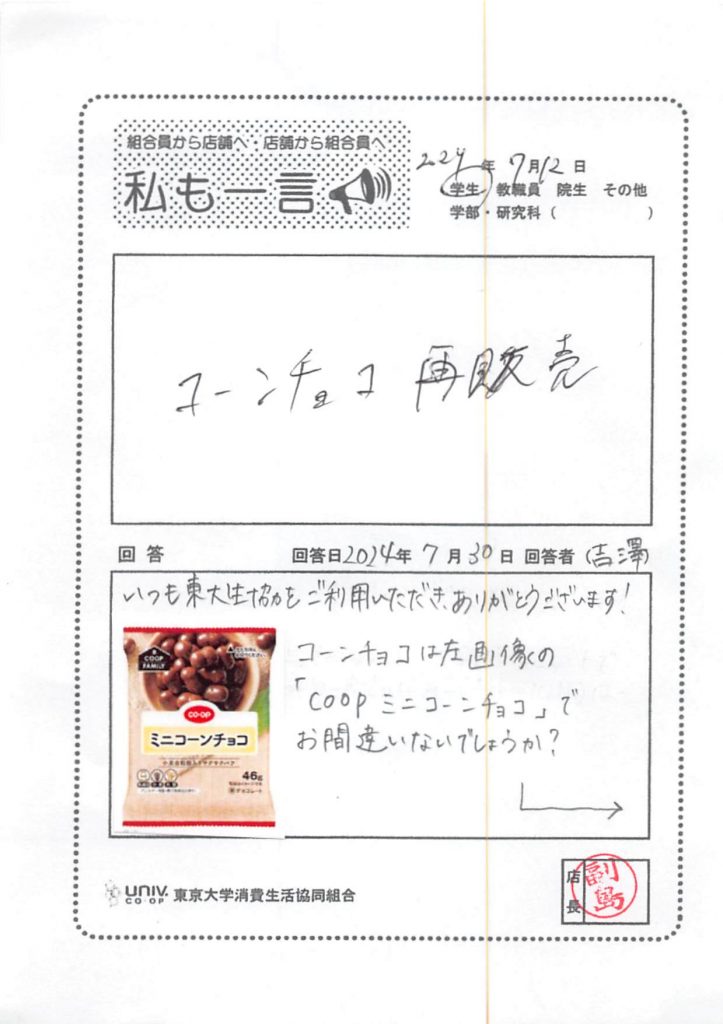 組合員から店舗へ・店舗から組合員へ
私も一言
2024年 7月12日
学生 教職員 院生 その他
学部・研究科( )
コーンチョコ 再販売
回答 回答日2024年 7月30日 回答者(吉澤)
いつも東大生協をご利用いただき、ありがとうございます!
コーンチョコは左画像の
「COOP ミニコーンチョコ」で
お間違いないでしょうか?
COOP FAMILY
CO・OP
ミニコーンチョコ
46g
UNIV. CO・OP 東京大学消費生活協同組合
店長
副島